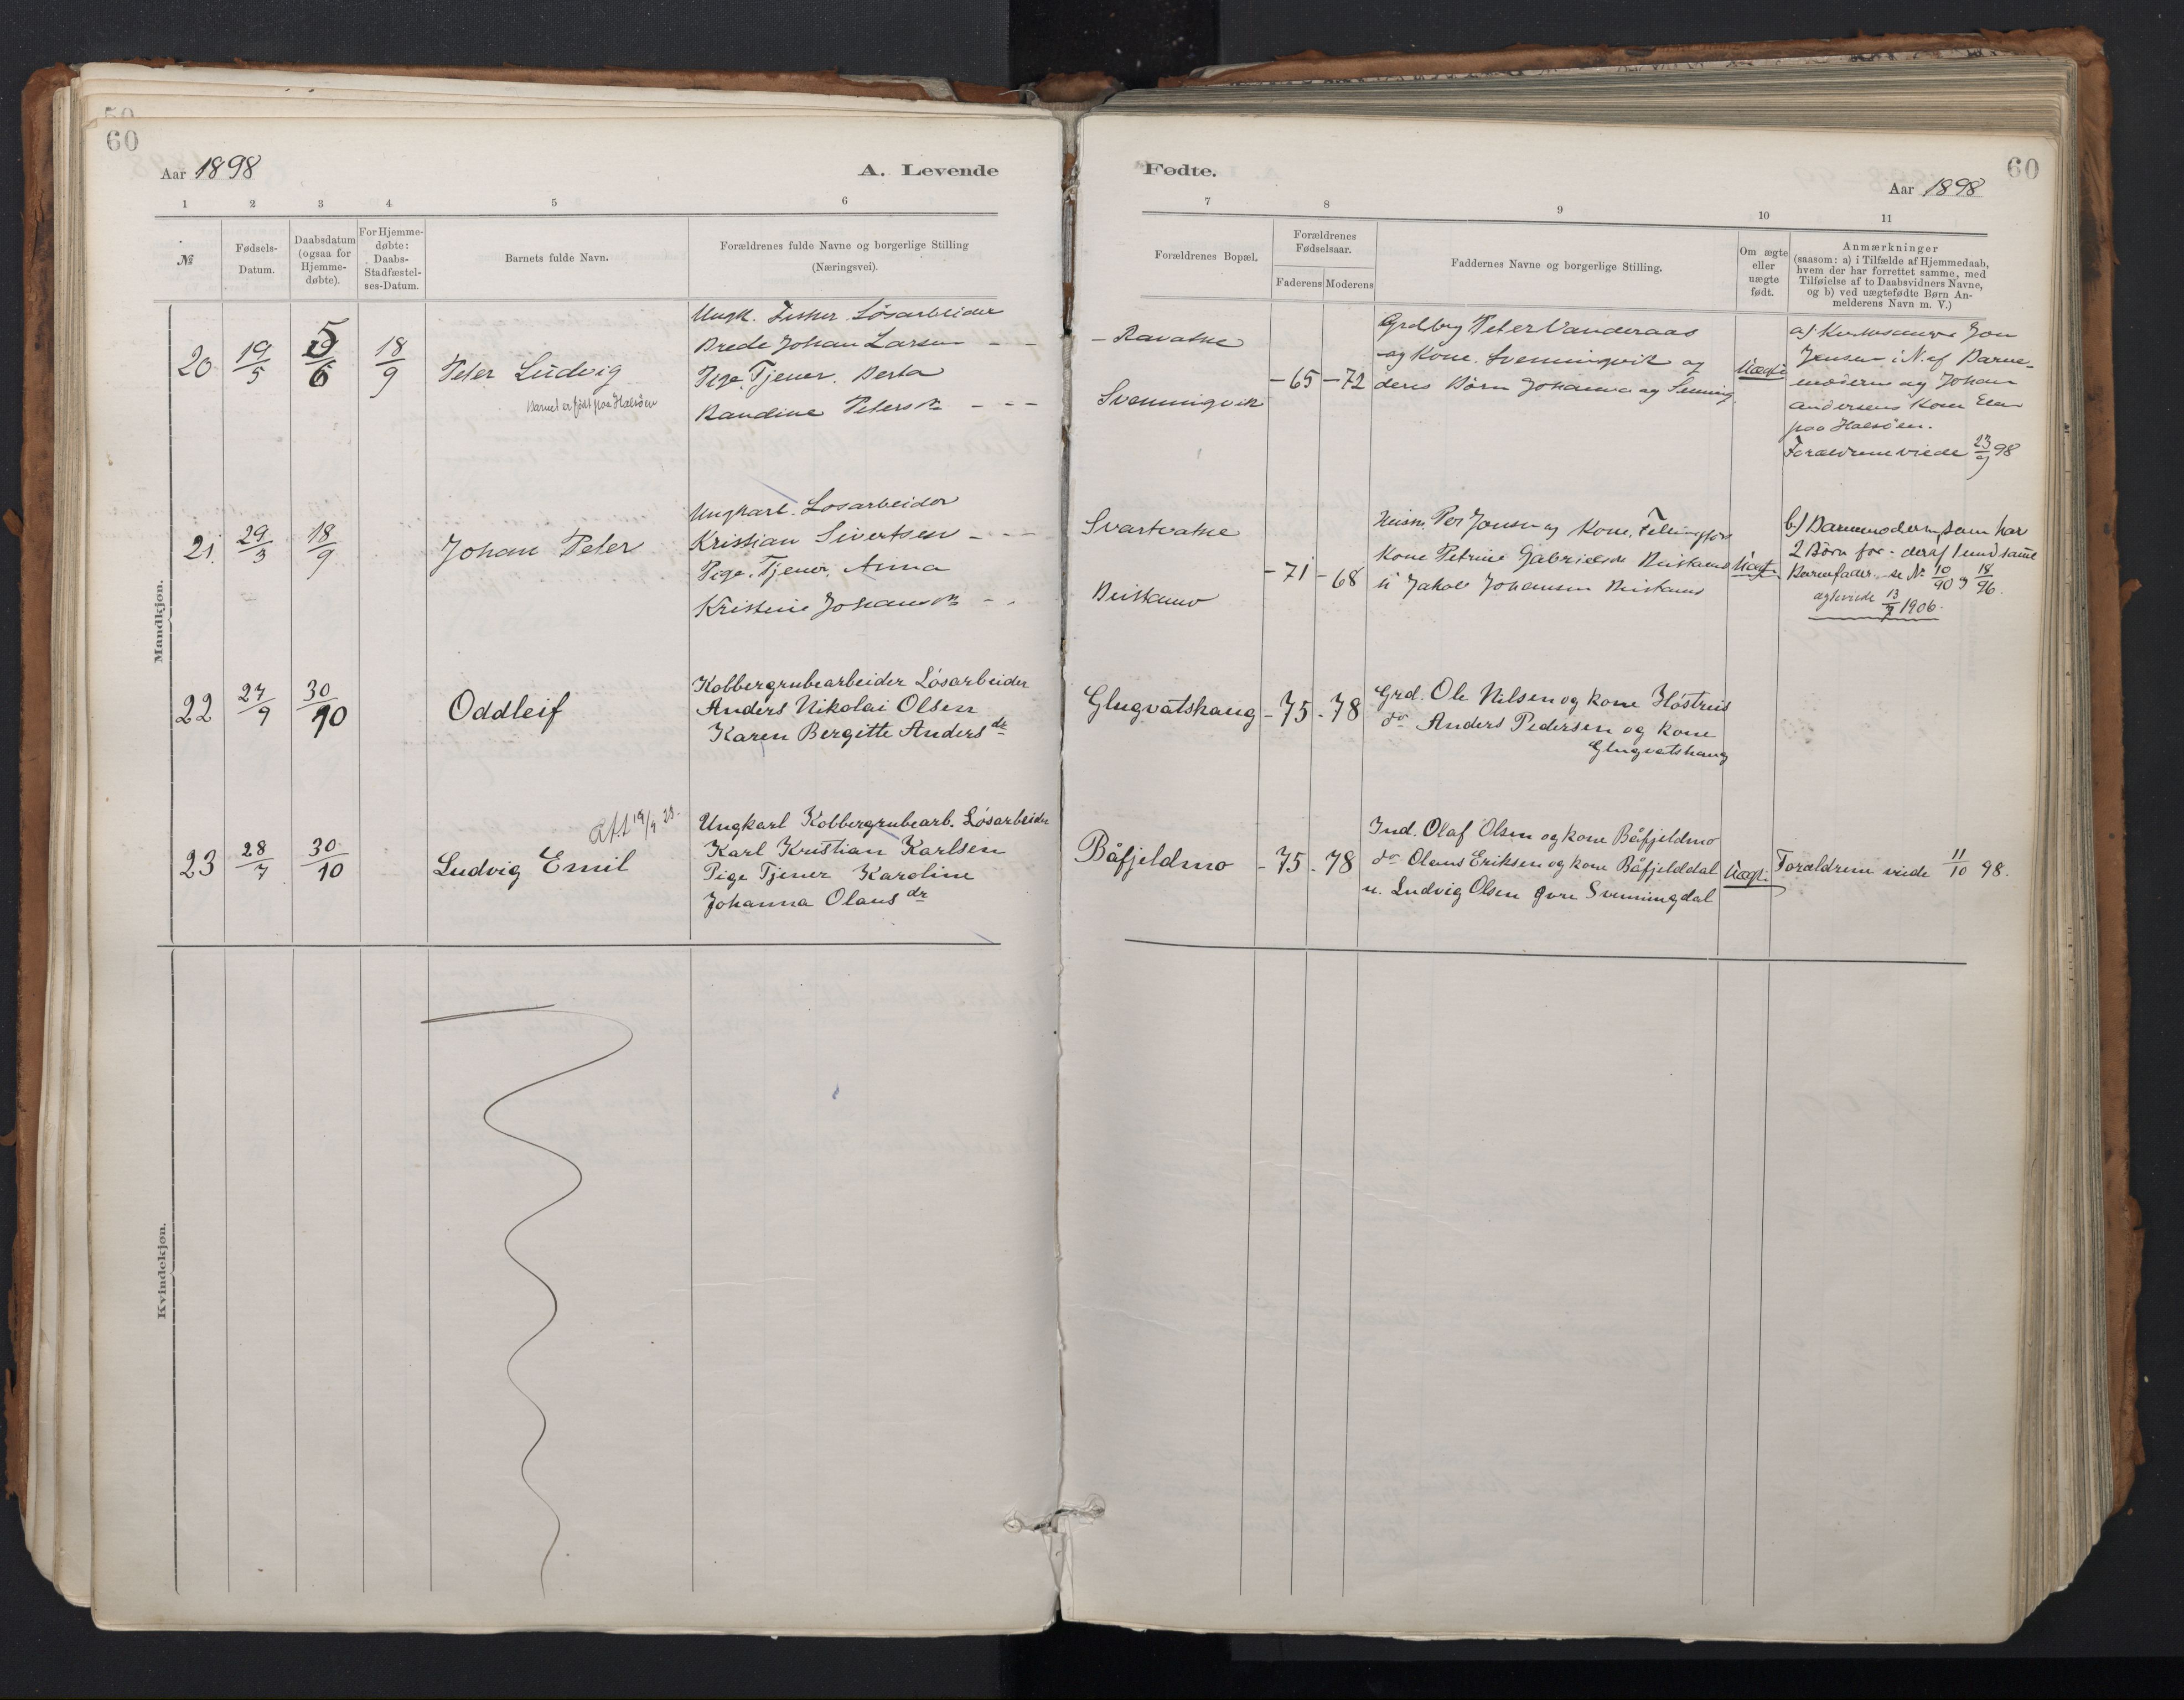 50
60
Aar 1898
A. Levende
1 2 3 4 5 6
№
Fødsels-
Datum.
Daabsdatum
(ogsaa for
Hjemme-
døbte).
For Hjemme-
døbte:
Daabs-
Stadfæstel-
ses-Datum.
Barnets fulde Navn.
Forældrenes fulde Navne og borgerlige Stilling
(Næringsvei).
Mandkjøn.
20 19/5 5/6 18/9
Peter Ludvig
Barnet er født paa Halsöen
Ungk. Fisker Løsarbeider
Brede Johan Larsen
Pige. Tjener. Berta
Randine Petersdr
21. 29/3 18/9
Johan Peter
Ungkarl. Løsarbeider
Kristian Sivertsen
Pige. Tjener. Anna
Kristine Johansdr
22 27/9 30/10
Oddleif
Kobbergrubearbeider Løsarbeider
Anders Nikolai Olsen
Karen Bergitte Andersdr
23 28/7 30/10
Att 19/9 23.
Ludvig Emil
Ungkarl Kobbergrubearb. Løsarbeider
Karl Kristian Karlsen
Pige Tjener Karoline
Johanna Olausdr
Kvindekjøn.
Fødte.
60
Aar 1898
7 8 9 10 11
Forældrenes Bopæl.
Forældrenes
Fødselsaar.
Faderens Moderens
Faddernes Navne og borgerlige Stilling.
Om ægte
eller
uægte
født.
Anmærkninger
(saasom: a) i Tilfælde af Hjemmedaab,
hvem der har forrettet samme, med
Tilføielse af to Daabsvidners Navne,
og b) ved uægtefødte Børn An-
melderens Navn m. V.)
Ravatne
Svenningvik
- 65 - 72
Grdbrg Peter Vanderaas
og Kone. Svenningvik og
deres Børn Johanna og
Uægte
a) Jon
Jensen i N. af Barne-
moderen og Johan
Andersens Kone
paa Halsöen.
Forældrene viede 23/9 98
Svartvatne
- 71 - 68
Husm. Per Jonsen og Kone, Fellingfors
Kone Petrine Gabrielsdr
u Jakob Johansen
Uægte
b.) Barnemoderen, som har
2 Børn før - deraf 1 med samme
Barnefader. se № 10/90 og 18/96.
13/7 1906.
Glugvatshaug
- 75 - 78
Grd. Ole Nilsen og kone
do Anders Pedersen og kone
Glugvatshaug
Båfjeldmo
- 75 - 78
Ind. Olaf Olsen og kone Båfjeldmo
do Olaus Eriksen og kone Båfjelddal
u. Ludvig Olsen Øvre Svenningdal
Uægte
Forældrene viede 11/10 98.